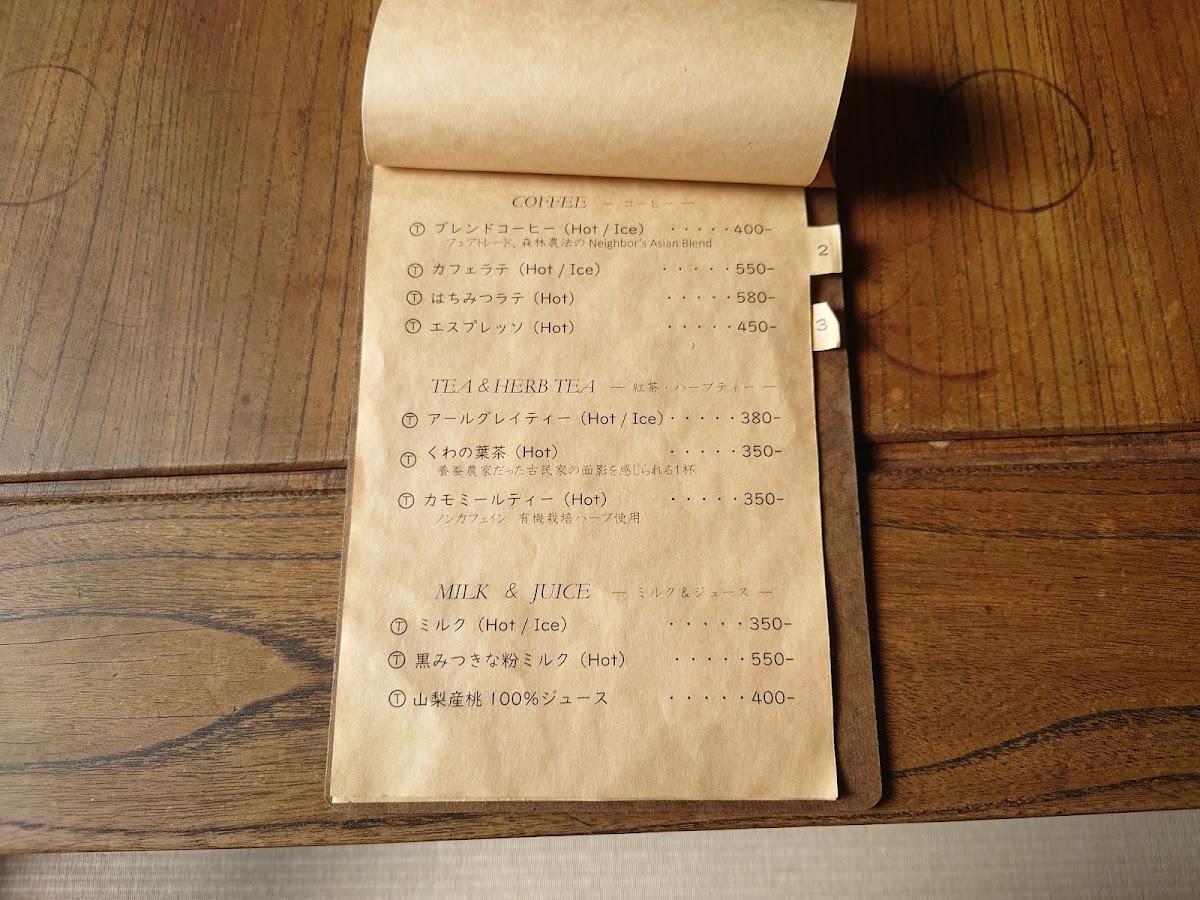 COFFEE ― コーヒー ―
Ⓣ ブレンドコーヒー (Hot / Ice) ・・・・・400-
フェアトレード、森林農法の Neighbor's Asian Blend
Ⓣ カフェラテ (Hot / Ice) ・・・・・550-
Ⓣ はちみつラテ (Hot) ・・・・・580-
Ⓣ エスプレッソ (Hot) ・・・・・450-
TEA & HERB TEA ― 紅茶・ハーブティー ―
Ⓣ アールグレイティー (Hot / Ice)・・・・・380-
Ⓣ くわの葉茶 (Hot) ・・・・・350-
養蚕農家だった古民家の面影を感じられる1杯
Ⓣ カモミールティー (Hot) ・・・・・350-
ノンカフェイン 有機栽培ハーブ使用
MILK & JUICE ― ミルク&ジュース ―
Ⓣ ミルク (Hot / Ice) ・・・・・350-
Ⓣ 黒みつきな粉ミルク (Hot) ・・・・・550-
Ⓣ 山梨産桃 100%ジュース ・・・・・400-
2
3